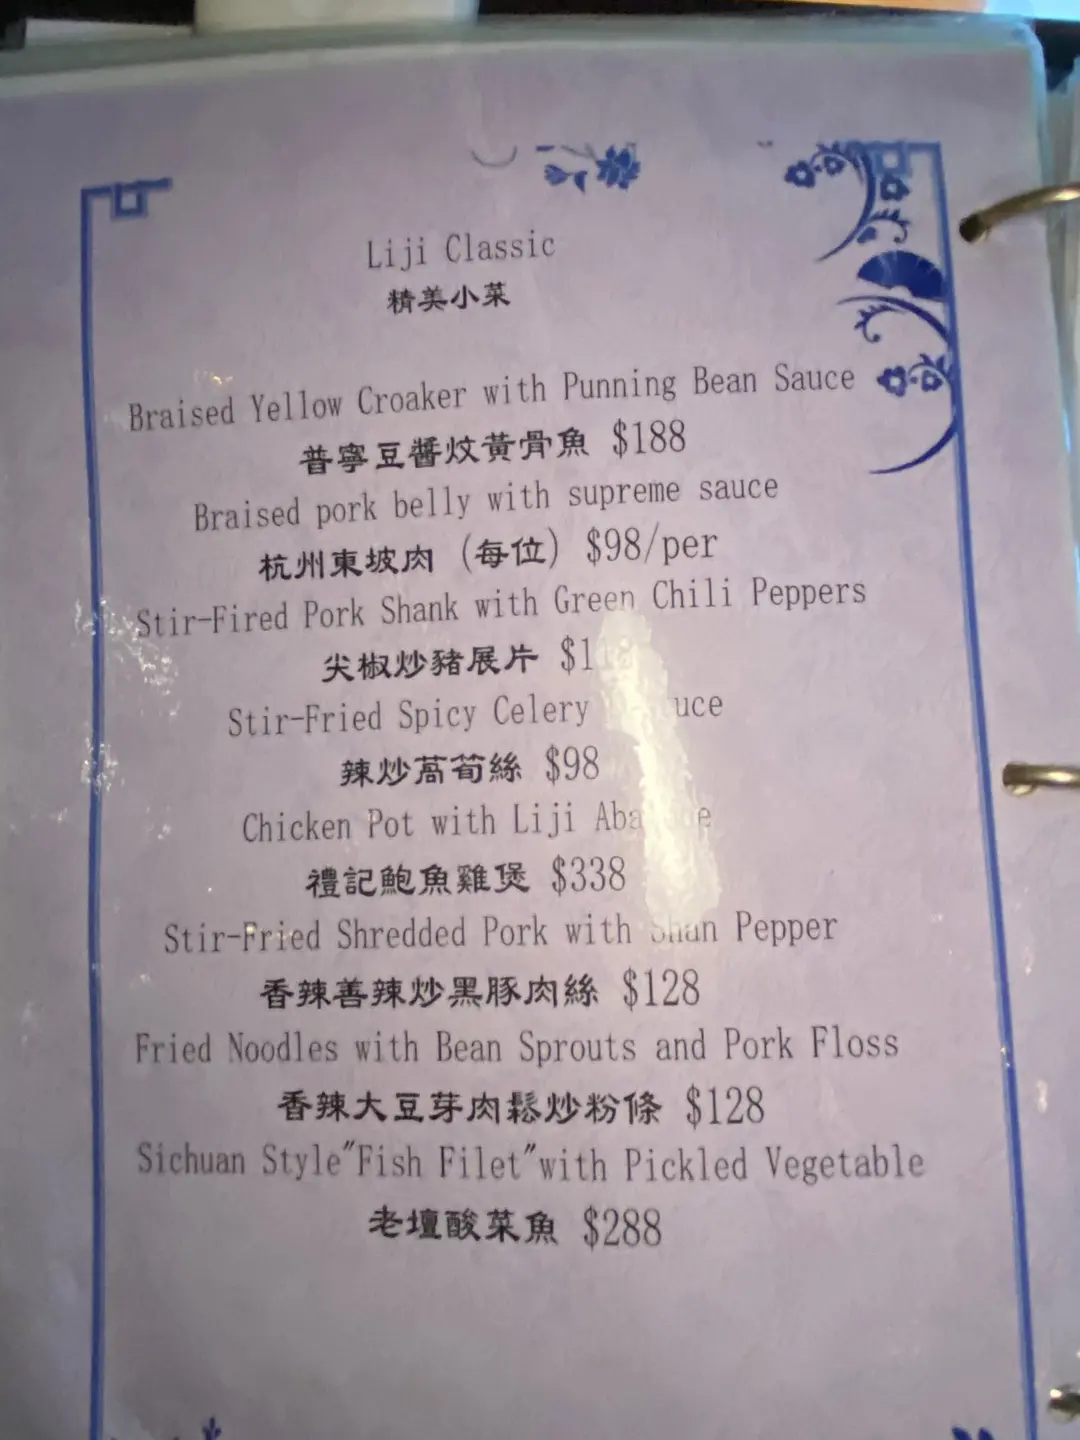 Liji Classic
精美小菜
Braised Yellow Croaker with Punning Bean Sauce
普寧豆醬炆黃骨魚 $188
Braised pork belly with supreme sauce
杭州東坡肉 (每位) $98/per
Stir-Fired Pork Shank with Green Chili Peppers
尖椒炒豬展片 $118
Stir-Fried Spicy Celery
辣炒萵筍絲 $98
Chicken Pot with Liji
禮記鮑魚雞煲 $338
Stir-Fried Shredded Pork with Shan Pepper
香辣善辣炒黑豚肉絲 $128
Fried Noodles with Bean Sprouts and Pork Floss
香辣大豆芽肉鬆炒粉條 $128
Sichuan Style"Fish Filet"with Pickled Vegetable
老壇酸菜魚 $288